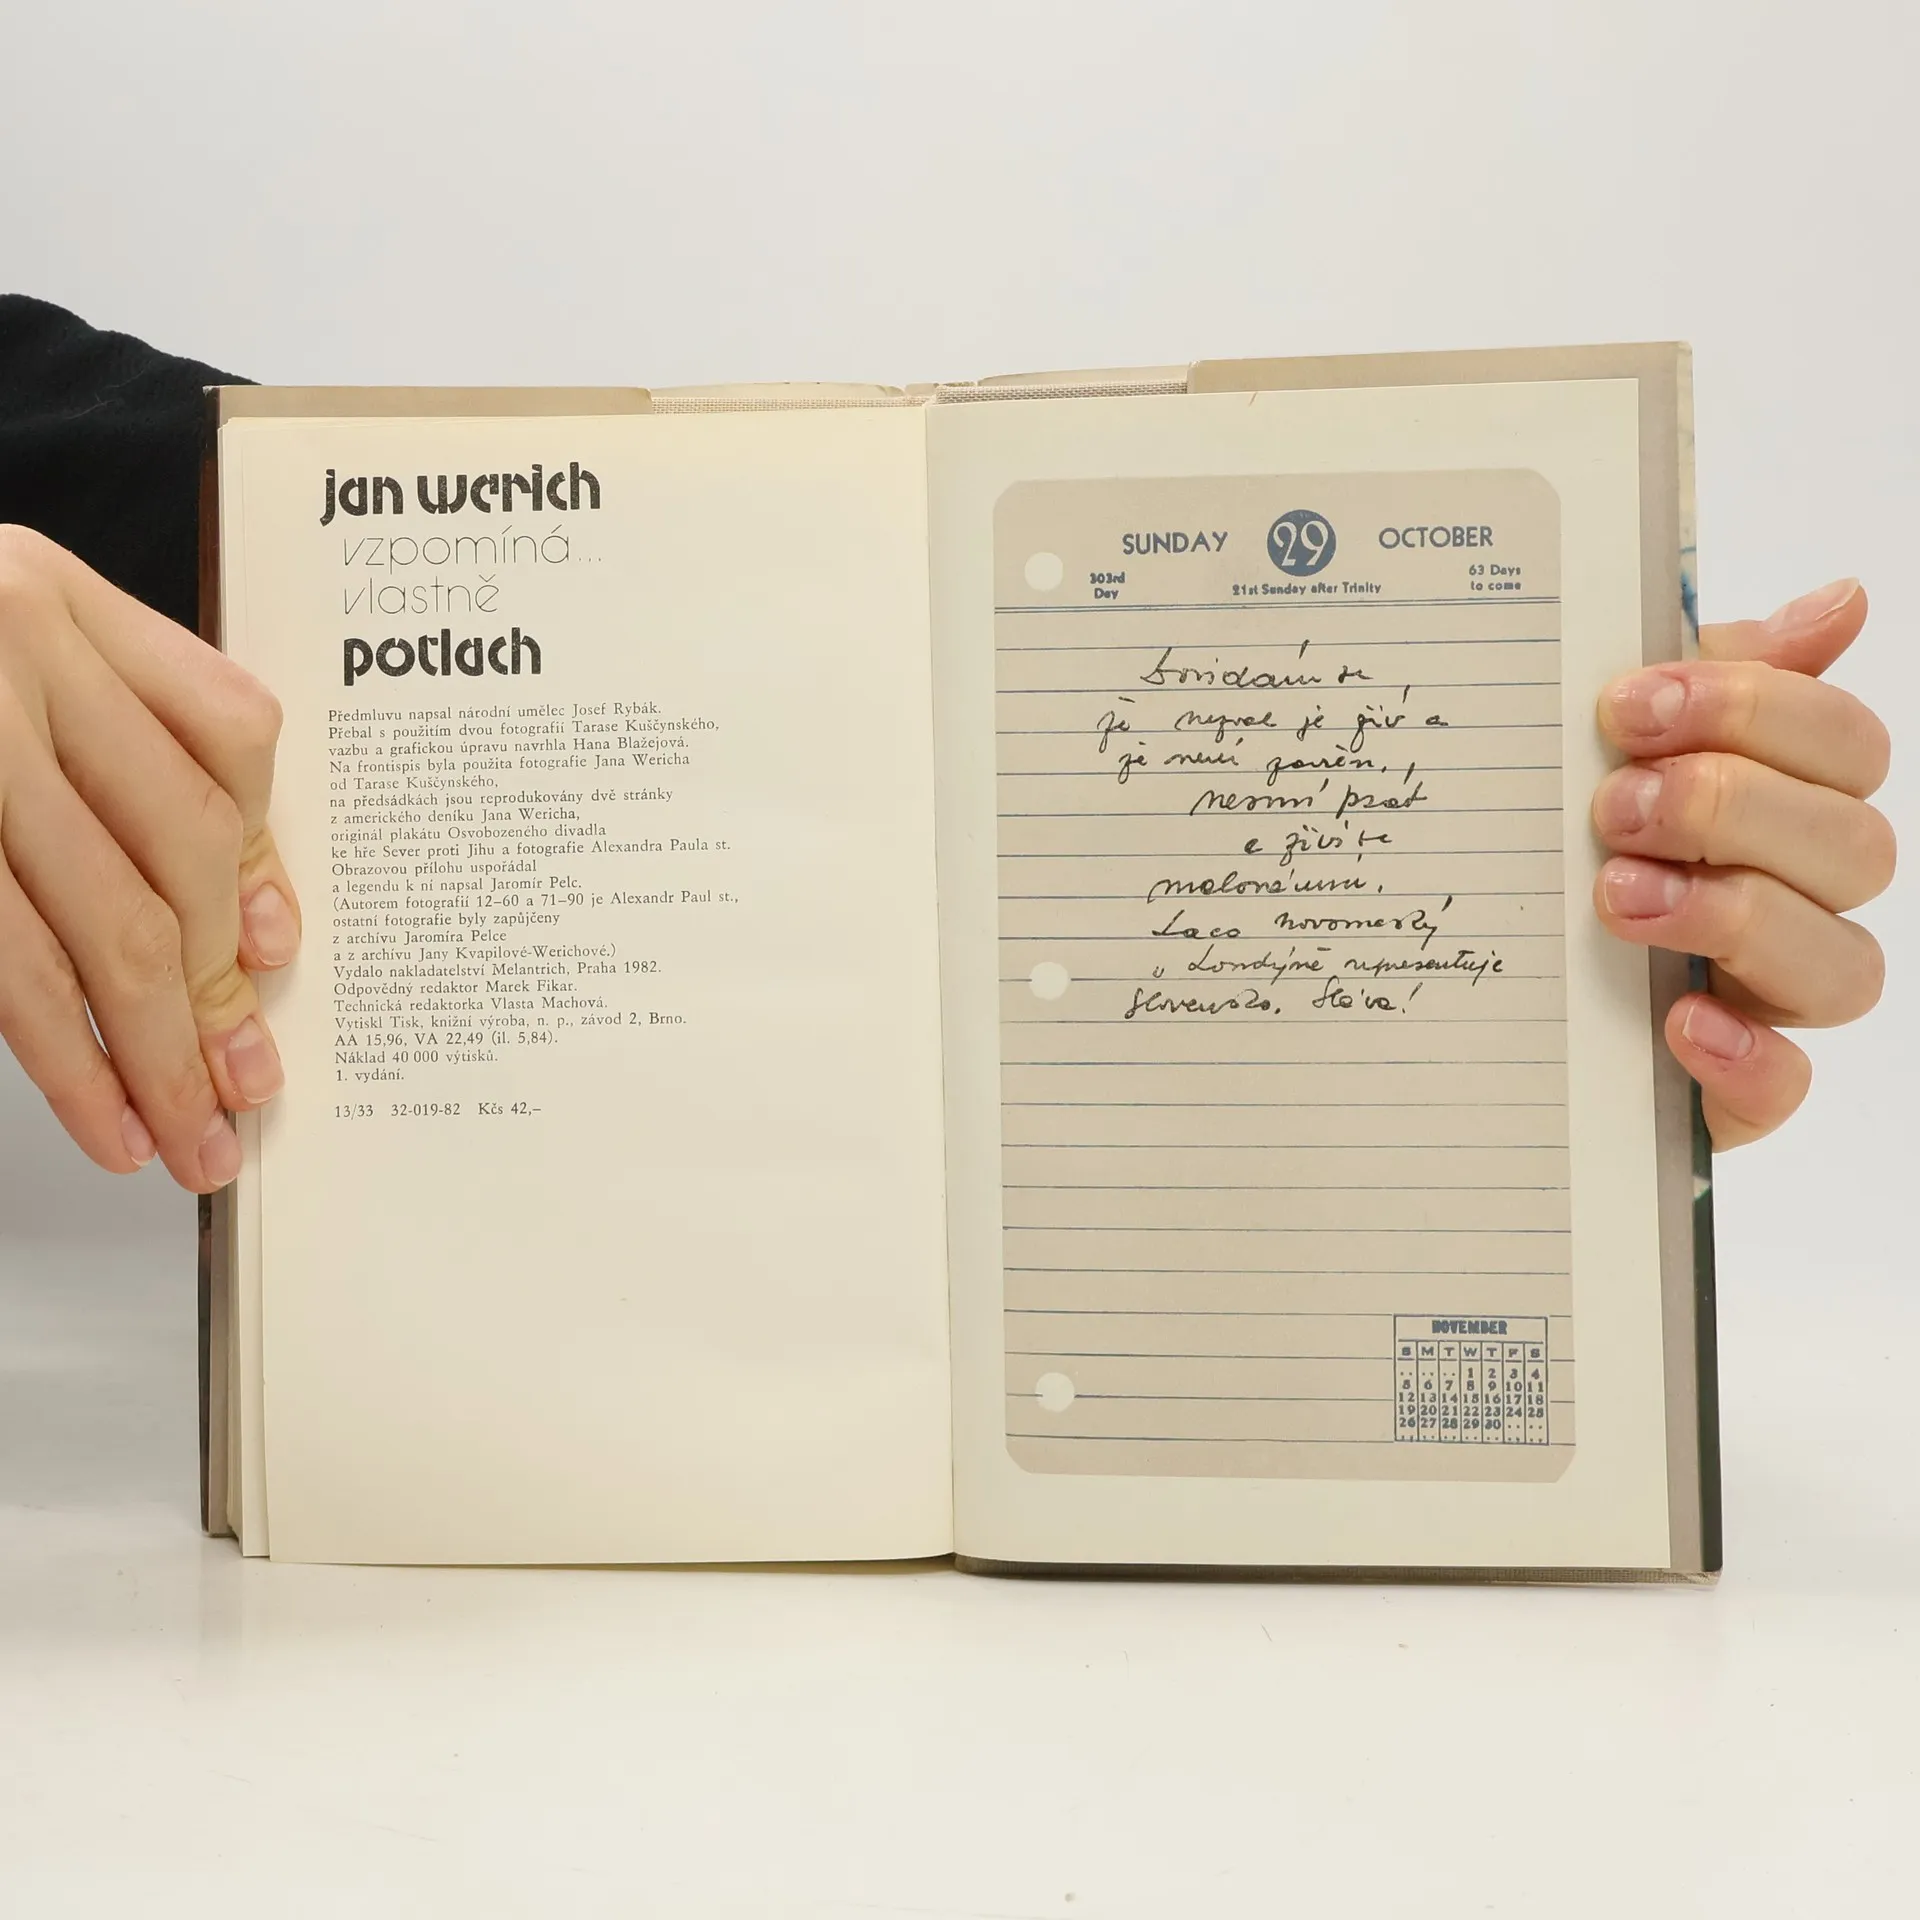 jan werich
vzpomíná...
vlastně
potlach
Předmluvu napsal národní umělec Josef Rybák.
Přebal s použitím dvou fotografií Tarase Kuščynského,
vazbu a grafickou úpravu navrhla Hana Blažejová.
Na frontispis byla použita fotografie Jana Wericha
od Tarase Kuščynského,
na předsádkách jsou reprodukovány dvě stránky
z amerického deníku Jana Wericha,
originál plakátu Osvobozeného divadla
ke hře Sever proti Jihu a fotografie Alexandra Paula st.
Obrazovou přílohu uspořádal
a legendu k ní napsal Jaromír Pelc.
(Autorem fotografií 12–60 a 71–90 je Alexandr Paul st.,
ostatní fotografie byly zapůjčeny
z archívu Jaromíra Pelce
a z archívu Jany Kvapilové-Werichové.)
Vydalo nakladatelství Melantrich, Praha 1982.
Odpovědný redaktor Marek Fikar.
Technická redaktorka Vlasta Machová.
Vytiskl Tisk, knižní výroba, n. p., závod 2, Brno.
AA 15,96, VA 22,49 (il. 5,84).
Náklad 40 000 výtisků.
1. vydání.
13/33 32-019-82 Kčs 42,–
SUNDAY 29 OCTOBER
303rd Day
21st Sunday after Trinity
63 Days to come
Dovídám se,
že nezval je živ a
že není zavřen,
nesmí psát
a živí se
malováním.
Laco novomeský
v Londýně representuje
Slovensko. Sláva!
NOVEMBER
S M T W T F S
.. .. .. 1 2 3 4
5 6 7 8 9 10 11
12 13 14 15 16 17 18
19 20 21 22 23 24 25
26 27 28 29 30 .. ..